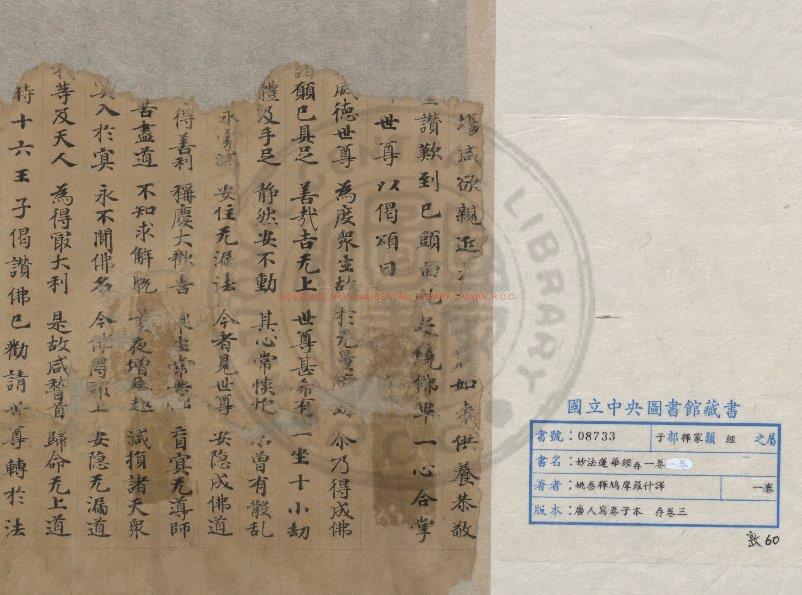 場咸欲親近 如來供養恭敬
讚歎到已頭面 足繞佛畢一心合掌
世尊以偈頌曰
威德世尊 為度衆生故 於无量 劫 尒乃得成佛
願已具足 善哉吉无上 世尊甚希有 一坐十小劫
體及手足 静然安不動 其心常惔怕 未曾有散乱
永 安住无漏法 今者見世尊 安隐成佛道
得善利 稱慶大歡喜 衆生常 盲冥无導師
苦盡道 不知求解脫 長夜增 減損諸天衆
入於冥 永不聞佛名 今佛得 上 安隐无漏道
我等及天人 為得最大利 是故咸稽首 歸命无上道
時十六王子偈讚佛已勸請世尊轉於法
國立中央圖書館藏書
書號:08733 子部釋家類 經 之屬
書名:妙法蓮華經存一卷
著者:姚秦釋鳩摩羅什譯 一卷
版本:唐人寫卷子本 存卷三
敦60